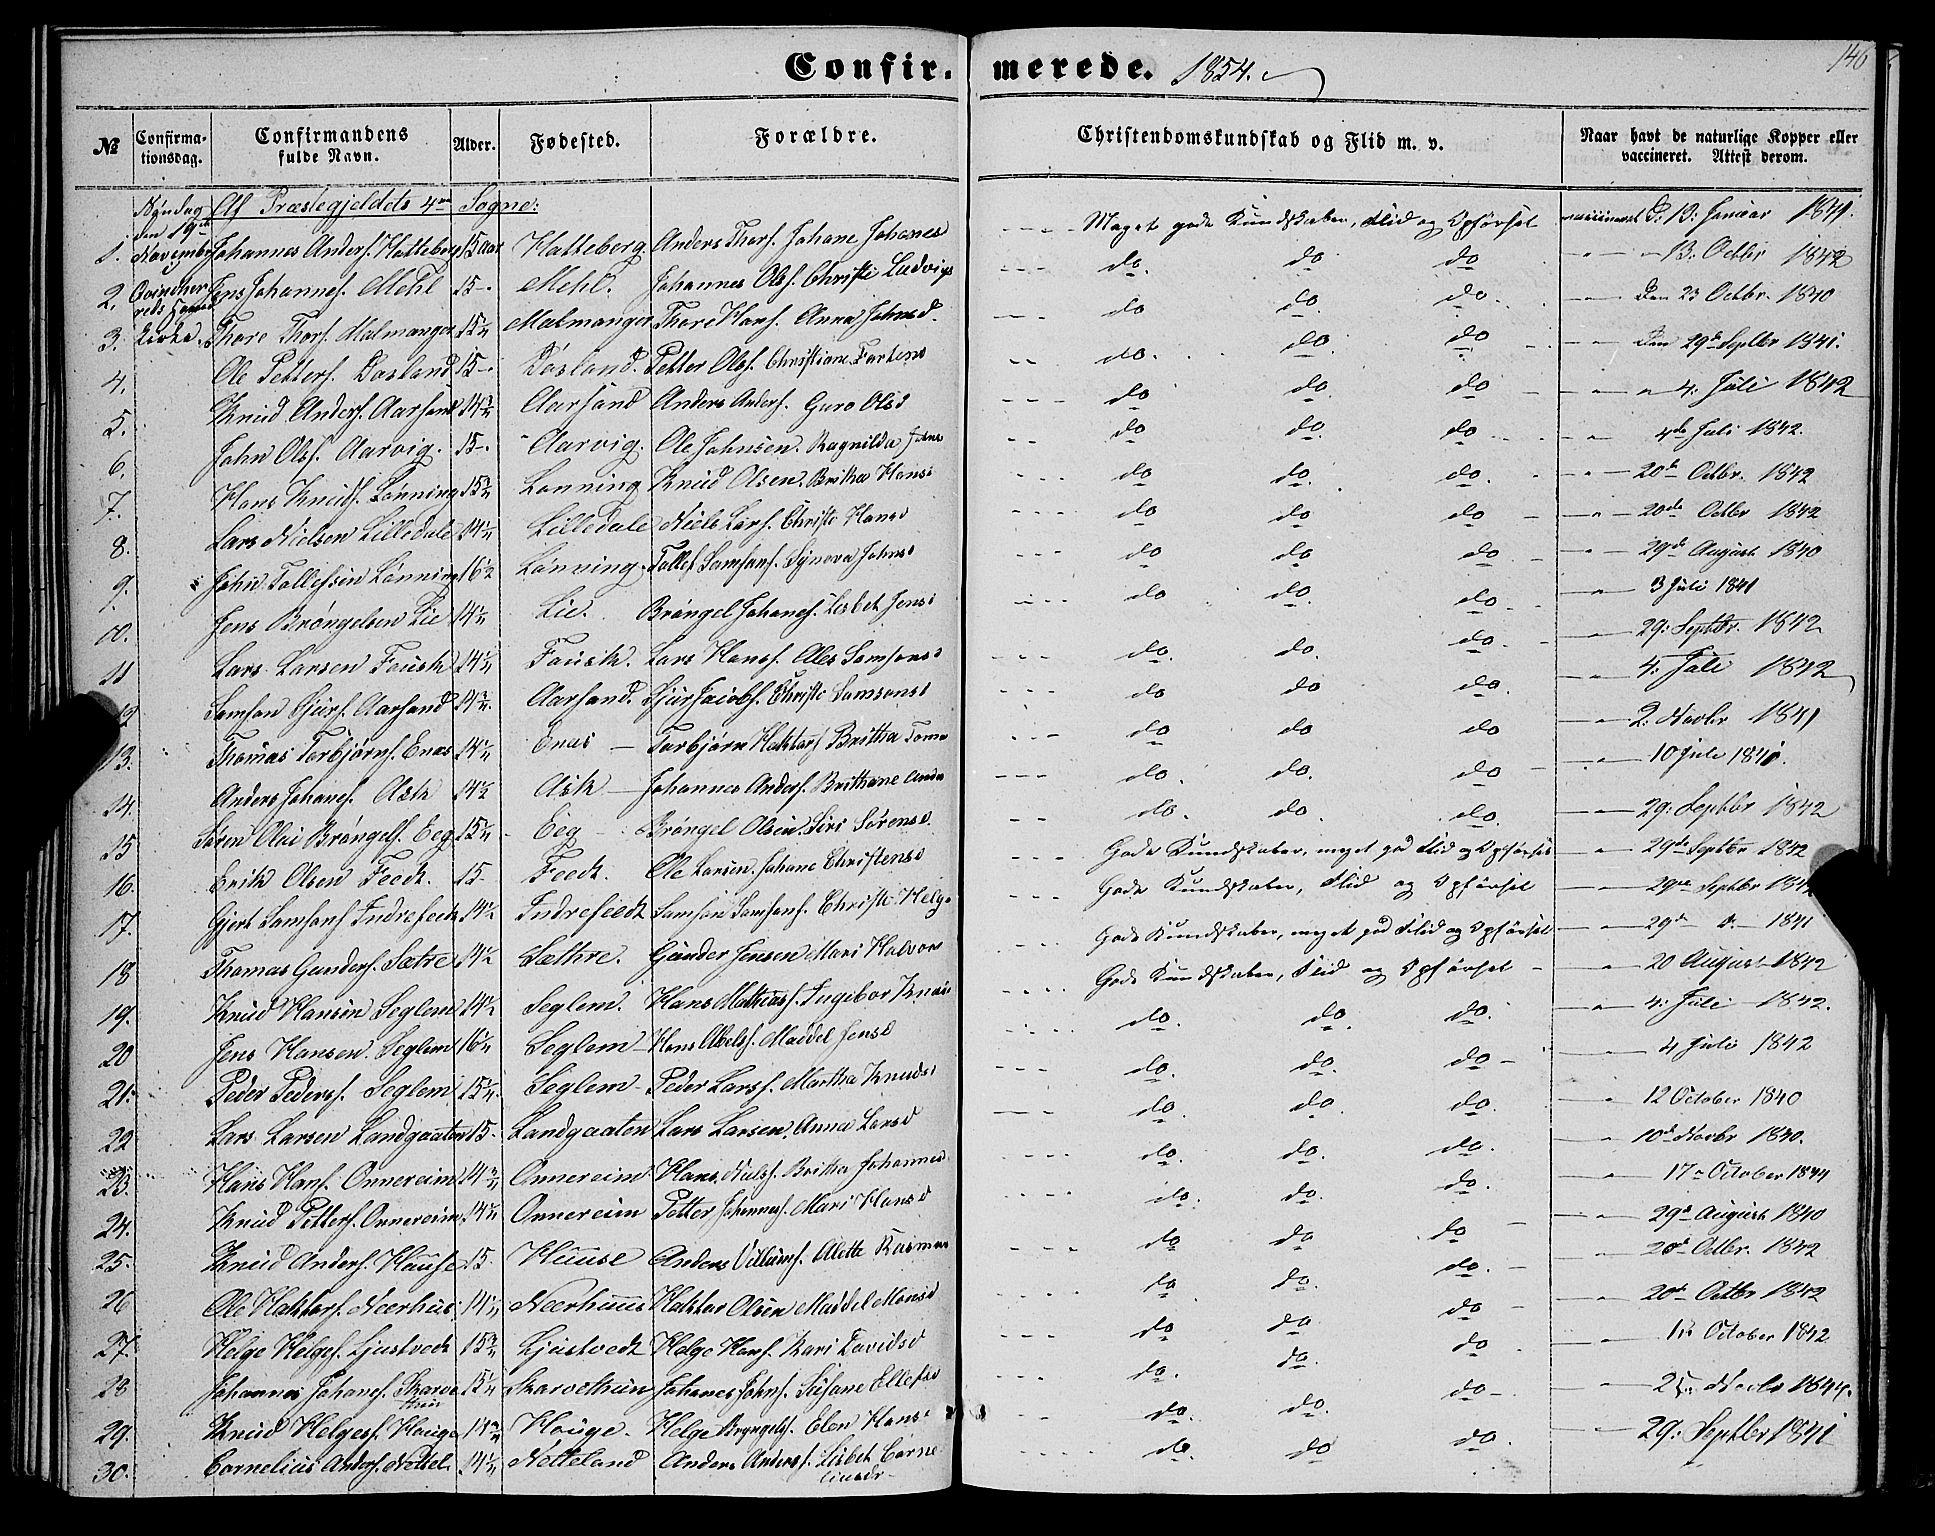 Confirmerede. 1854.
146
№ Confirmationsdag. Confirmandens fulde Navn. Alder. Fødested. Forældre. Christendomskundskab og Flid m. v. Naar havt de naturlige Kopper eller vaccineret. Attest derom.
Søndag den 19de November Qvindherreds Hoved Kirke.
Af Præstegjeldets 4re Sogne:
1. Johannes Anders. Hatteberg 15 aar Hatteberg Anders Thors. Johane Johanesd Meget gode Kundskaber, Flid og Opførsel vaccineret D: 13: Januar 1841.
2. Jens Johannes. Mehl 15 Mehl. Johannes Ols. Christi Ludvigs do do do 13. Octbr 1842
3. Thore Thors. Malmanger 15 Malmanger Thore Hans. Anna Johnsd. do do do Den 23 Octbr. 1840
4. Ole Petters. Døsland 15 Døsland. Petter Ols. Christiane Tortens do. do do Den 29de Septbr 1841.
5. Knud Anders. Aarsand 14 Aarsand Anders Anders. Guro Olsd do do do 4. Juli 1842
6. John Ols. Aarvig. 15 Aarvig. Ole Johnsen. Ragnilda Johns do do. do 4de Juli 1842.
7. Hans Knuds. Lønning 15 Lønning Knud Olsen. Britha Hansd do do. do. 20de Octbr. 1842
8. Lars Nielsen Lilledale 14 Lilledale Niels Lars. Christi Hansd do do do 20de Octbr 1842
9. John Tollefsen Lønning 16 Lønning. Tollef Samsons. Synova Johnsd do do do 29de August 1840
10. Jens Brøngelsen Lie 14 Lie. Brøngel Johanes. Lisbet Jensd do do. do 3 Juli 1841
11 Lars Larsen Fousk 14 Fousk. Lars Hans. Ales Samsonsd do. do. do 29: Septbr. 1842
12 Samson Sjurs. Aarsand 14 Aarsand. Sjur Jacobs. Christi Samsonsd do do do. 4. Juli 1842
13. Thomas Torbjørns. Enes 14 Enes Torbjørn Haktors Britha Tom do do do 2. Novbr 1841
14. Anders Johanes. Ask 14 Ask Johannes Anders. Brithane Ande do. do. do 10 Juli 1841.
15 Søren Olai Brøngels. Eeg 15 Eeg Brøngel Olsen. Siri Sørensd. do. do. do. 29: Septbr 1842
16. Erik Olsen Feedt. 15 Feedt. Ole Larsen. Johane Christensd Gode Kundskaber, meget god Flid og Opførsel 29de Septbr 1842
17. Gjert Samsons. Indrefeedt 14 Indrefeedt Samson Samsons. Christi Helg Gode Kundskaber, Flid og Opførsel 29de Septbr 1842
18 Thomas Gunders. Sætre 14 Sæthre. Gunder Jensen Mari Halvors Gode Kundskaber, meget god Flid og Opførsel 29de 1841
19. Knud Hansen Seglem 14 Seglem. Hans Mathias. Ingebor Knu Gode Kundskaber, Flid og Opførsel 20 August 1842
20 Jens Hansen. Seglem 16 Seglem Hans Abels. Maddel Jensd do. do. do. 4: Juli 1842.
21: Peder Peders. Seglem 15 Seglem Peder Lars. Martha Knudsd do. do. do 4 Juli 1842
22 Lars Larsen Landgaaten 15. Landgaaten Lars Larsen. Anna Larsd do. do. do. 12 October 1840
23. Hans Hans. Onnereim 14 Onnereim Hans Niels. Britha Johannesd do. do. do. 10de Novbr 1840.
24. Knud Petters. Onnereim 14 Onnereim Petter Johannes. Mari Hansd do. do. do. 17de October 1844
25. Knud Anders. Huuse 15. Huuse Anders Villums. Alette Rasmus do do do 29de August 1840
20de Octbr. 1842
26 Ole Haktors. Neerhus. 14 Neerhuus Haktor Olsen Maddel Monsd do do. do. 20de Octbr 1842
27. Helge Helges. Ljustvedt 15 Ljustvedt Helge Hans. Kari Davidsd do do do October 1842
28 Johannes Johanes. Skarvethun 15 Skarvethun Johanes Johns. Susane Ellefsd do. do. do Novbr 1844.
29. Knud Helges. Houge 14 Houge. Helge Bryngels. Elen Hansd do do. do 29: Septbr 1841
30. Cornelius Anders. Nettel. 14 Netteland Anders Anders. Lisbet Corneliusdr do. do do.